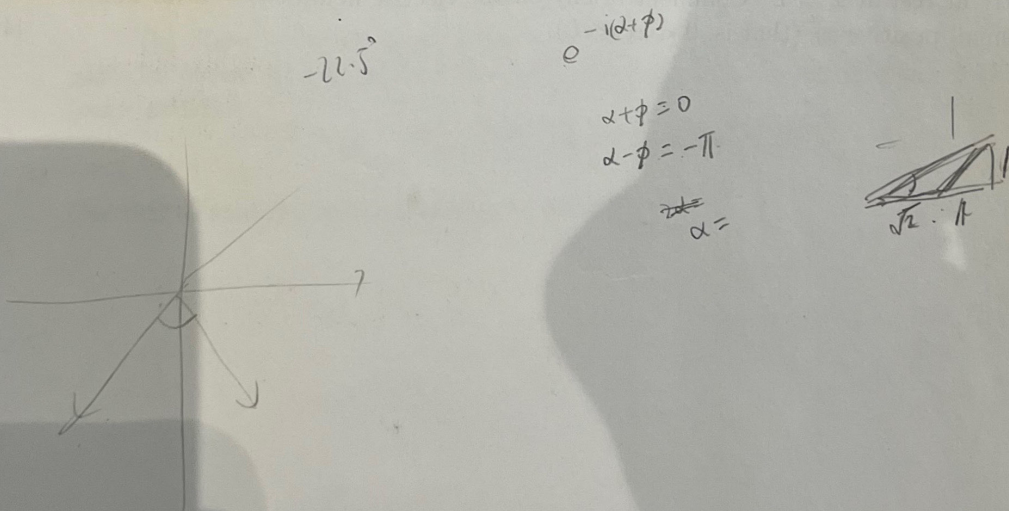 -22.5°
e^{-i(α+ϕ)}
α+ϕ=0
α-ϕ=-π
α=
1
√2
1